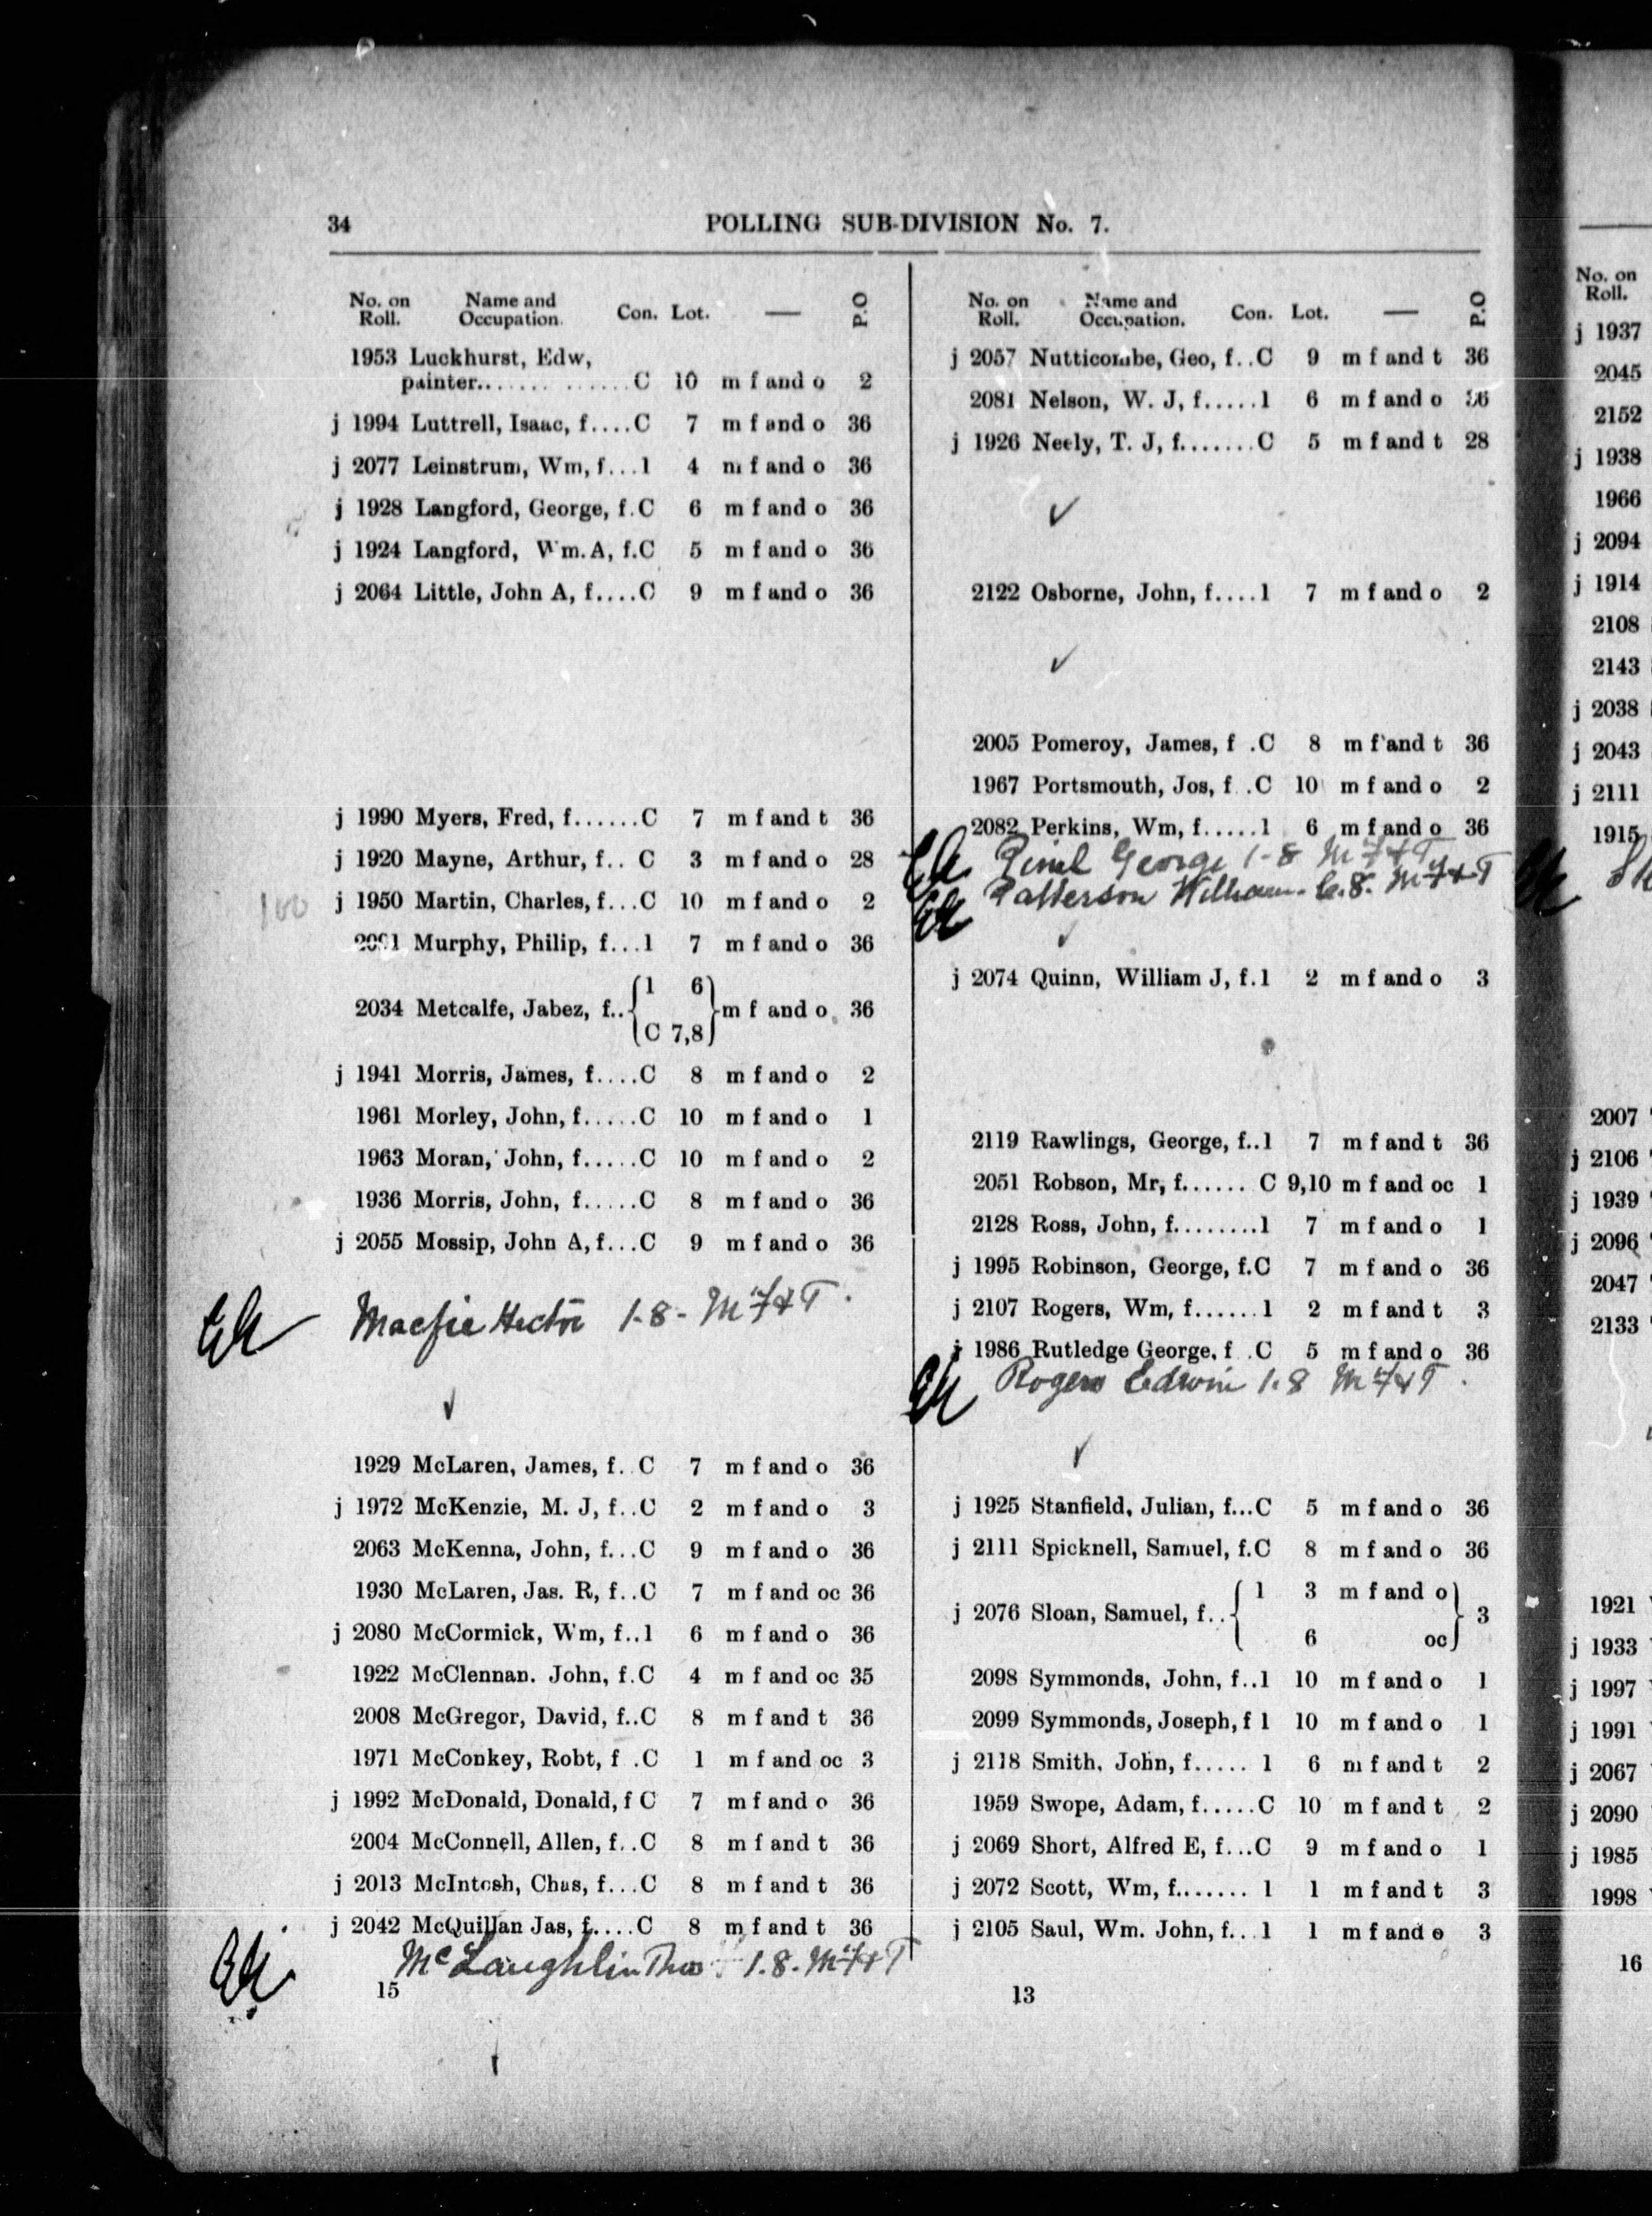 34 POLLING SUB-DIVISION No. 7.
No. on Roll. Name and Occupation. Con. Lot. — P.O
1953 Luckhurst, Edw,
painter.. ....... ......C 10 m f and o 2
j 1994 Luttrell, Isaac, f....C 7 m f and o 36
j 2077 Leinstrum, Wm, f...1 4 m f and o 36
j 1928 Langford, George, f.C 6 m f and o 36
j 1924 Langford, Wm. A, f.C 5 m f and o 36
j 2064 Little, John A, f....C 9 m f and o 36
j 1990 Myers, Fred, f......C 7 m f and t 36
j 1920 Mayne, Arthur, f.. C 3 m f and o 28
100 j 1950 Martin, Charles, f...C 10 m f and o 2
Murphy, Philip, f...1 7 m f and o 36
1 6
2034 Metcalfe, Jabez, f.. m f and o 36
C 7,8
j 1941 Morris, James, f....C 8 m f and o 2
1961 Morley, John, f.....C 10 m f and o 1
1963 Moran, John, f.....C 10 m f and o 2
1936 Morris, John, f.....C 8 m f and o 36
j 2055 Mossip, John A, f...C 9 m f and o 36
Macfie Hector 1-8- M F & T
1929 McLaren, James, f. C 7 m f and o 36
j 1972 McKenzie, M. J, f..C 2 m f and o 3
2063 McKenna, John, f...C 9 m f and o 36
1930 McLaren, Jas. R, f..C 7 m f and oc 36
j 2080 McCormick, Wm, f..1 6 m f and o 36
1922 McClennan. John, f.C 4 m f and oc 35
2008 McGregor, David, f..C 8 m f and t 36
1971 McConkey, Robt, f .C 1 m f and oc 3
j 1992 McDonald, Donald, f C 7 m f and o 36
2004 McConnell, Allen, f..C 8 m f and t 36
j 2013 McIntosh, Chas, f...C 8 m f and t 36
j 2042 McQuillan Jas, f....C 8 m f and t 36
McLaughlin Thos 1.8. M F & T
15
No. on Roll. Name and Occupation. Con. Lot. — P.O
j 2057 Nutticombe, Geo, f..C 9 m f and t 36
2081 Nelson, W. J, f.....1 6 m f and o 36
j 1926 Neely, T. J, f.......C 5 m f and t 28
2122 Osborne, John, f....1 7 m f and o 2
2005 Pomeroy, James, f .C 8 m f and t 36
1967 Portsmouth, Jos, f .C 10 m f and o 2
2082 Perkins, Wm, f.....1 6 m f and o 36
George 1-8 M F & T
Patterson William C.8. M F & T
j 2074 Quinn, William J, f.1 2 m f and o 3
2119 Rawlings, George, f..1 7 m f and t 36
2051 Robson, Mr, f...... C 9,10 m f and oc 1
2128 Ross, John, f........1 7 m f and o 1
j 1995 Robinson, George, f.C 7 m f and o 36
j 2107 Rogers, Wm, f......1 2 m f and t 3
j 1986 Rutledge George, f .C 5 m f and o 36
Rogers Edwin 1.8 M F & T
j 1925 Stanfield, Julian, f...C 5 m f and o 36
j 2111 Spicknell, Samuel, f.C 8 m f and o 36
1 3 m f and o
j 2076 Sloan, Samuel, f.. 3
6 oc
2098 Symmonds, John, f..1 10 m f and o 1
2099 Symmonds, Joseph, f 1 10 m f and o 1
j 2118 Smith, John, f..... 1 6 m f and t 2
1959 Swope, Adam, f.....C 10 m f and t 2
j 2069 Short, Alfred E, f...C 9 m f and o 1
j 2072 Scott, Wm, f....... 1 1 m f and t 3
j 2105 Saul, Wm. John, f...1 1 m f and o 3
13
No. on Roll.
j 1937
2045
2152
j 1938
1966
j 2094
j 1914
2108
2143
j 2038
j 2043
j 2111
1915
2007
j 2106
j 1939
j 2096
2047
2133
1921
j 1933
j 1997
j 1991
j 2067
j 2090
j 1985
1998
16